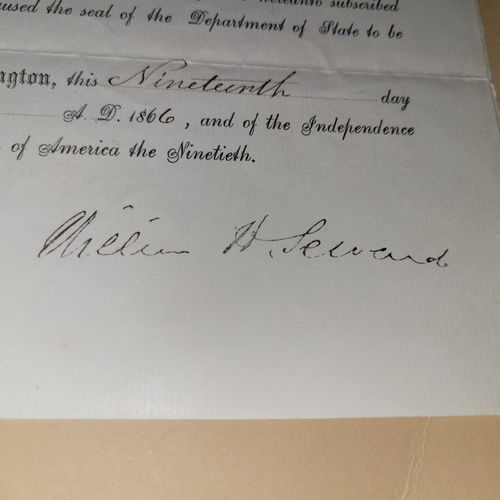 hereunto subscribed
caused the seal of the Department of State to be
ngton, this Nineteenth day
A. D. 1866, and of the Independence
of America the Ninetieth.
William H. Seward